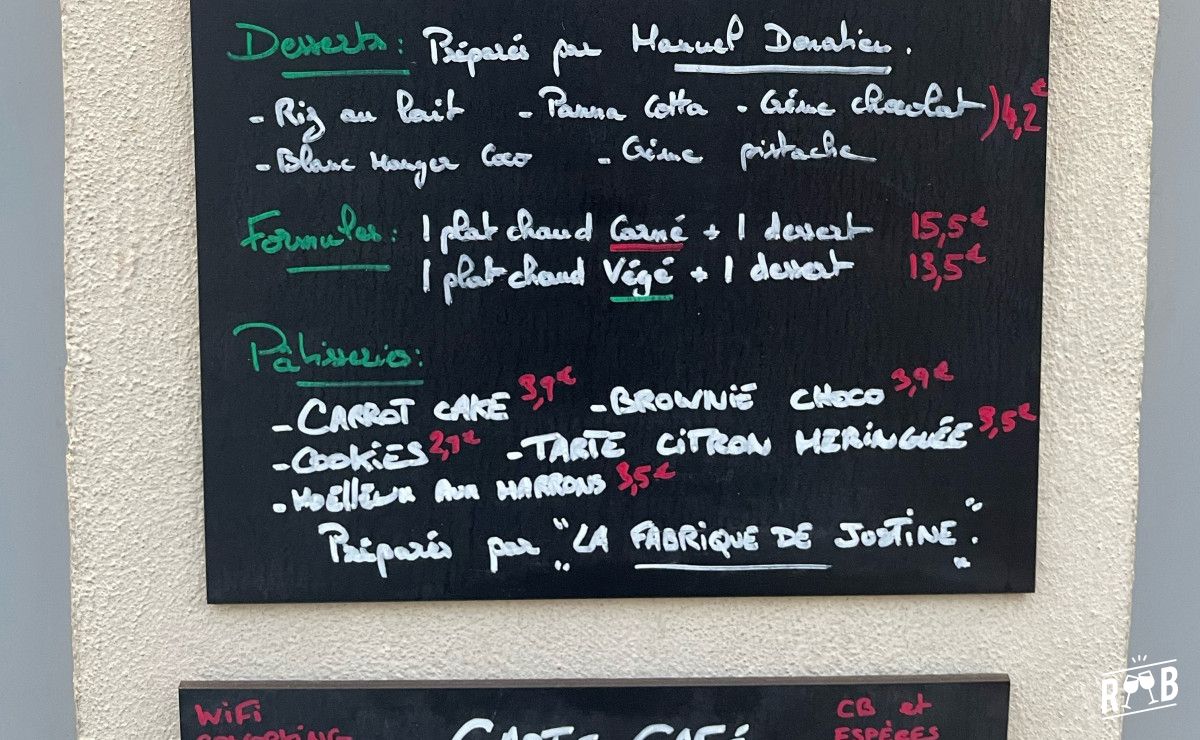 Desserts: Préparés par Manuel Donatien.
- Riz au lait - Panna Cotta - Crème chocolat ) 4,2€
- Blanc Manger Coco - Crème pistache
Formules: 1 plat chaud Carné + 1 dessert 15,5€
1 plat chaud Végé + 1 dessert 13,5€
Pâtisseries:
- CARROT CAKE 3,9€ - BROWNIE CHOCO 3,9€
- COOKIES 2,9€ - TARTE CITRON MERINGUÉE 3,5€
- MOELLEUX AUX MARRONS 3,5€
Préparés par "LA FABRIQUE DE JUSTINE".
WiFi CB et
COWORKING CARTE CAFÉ ESPÈCES
R B